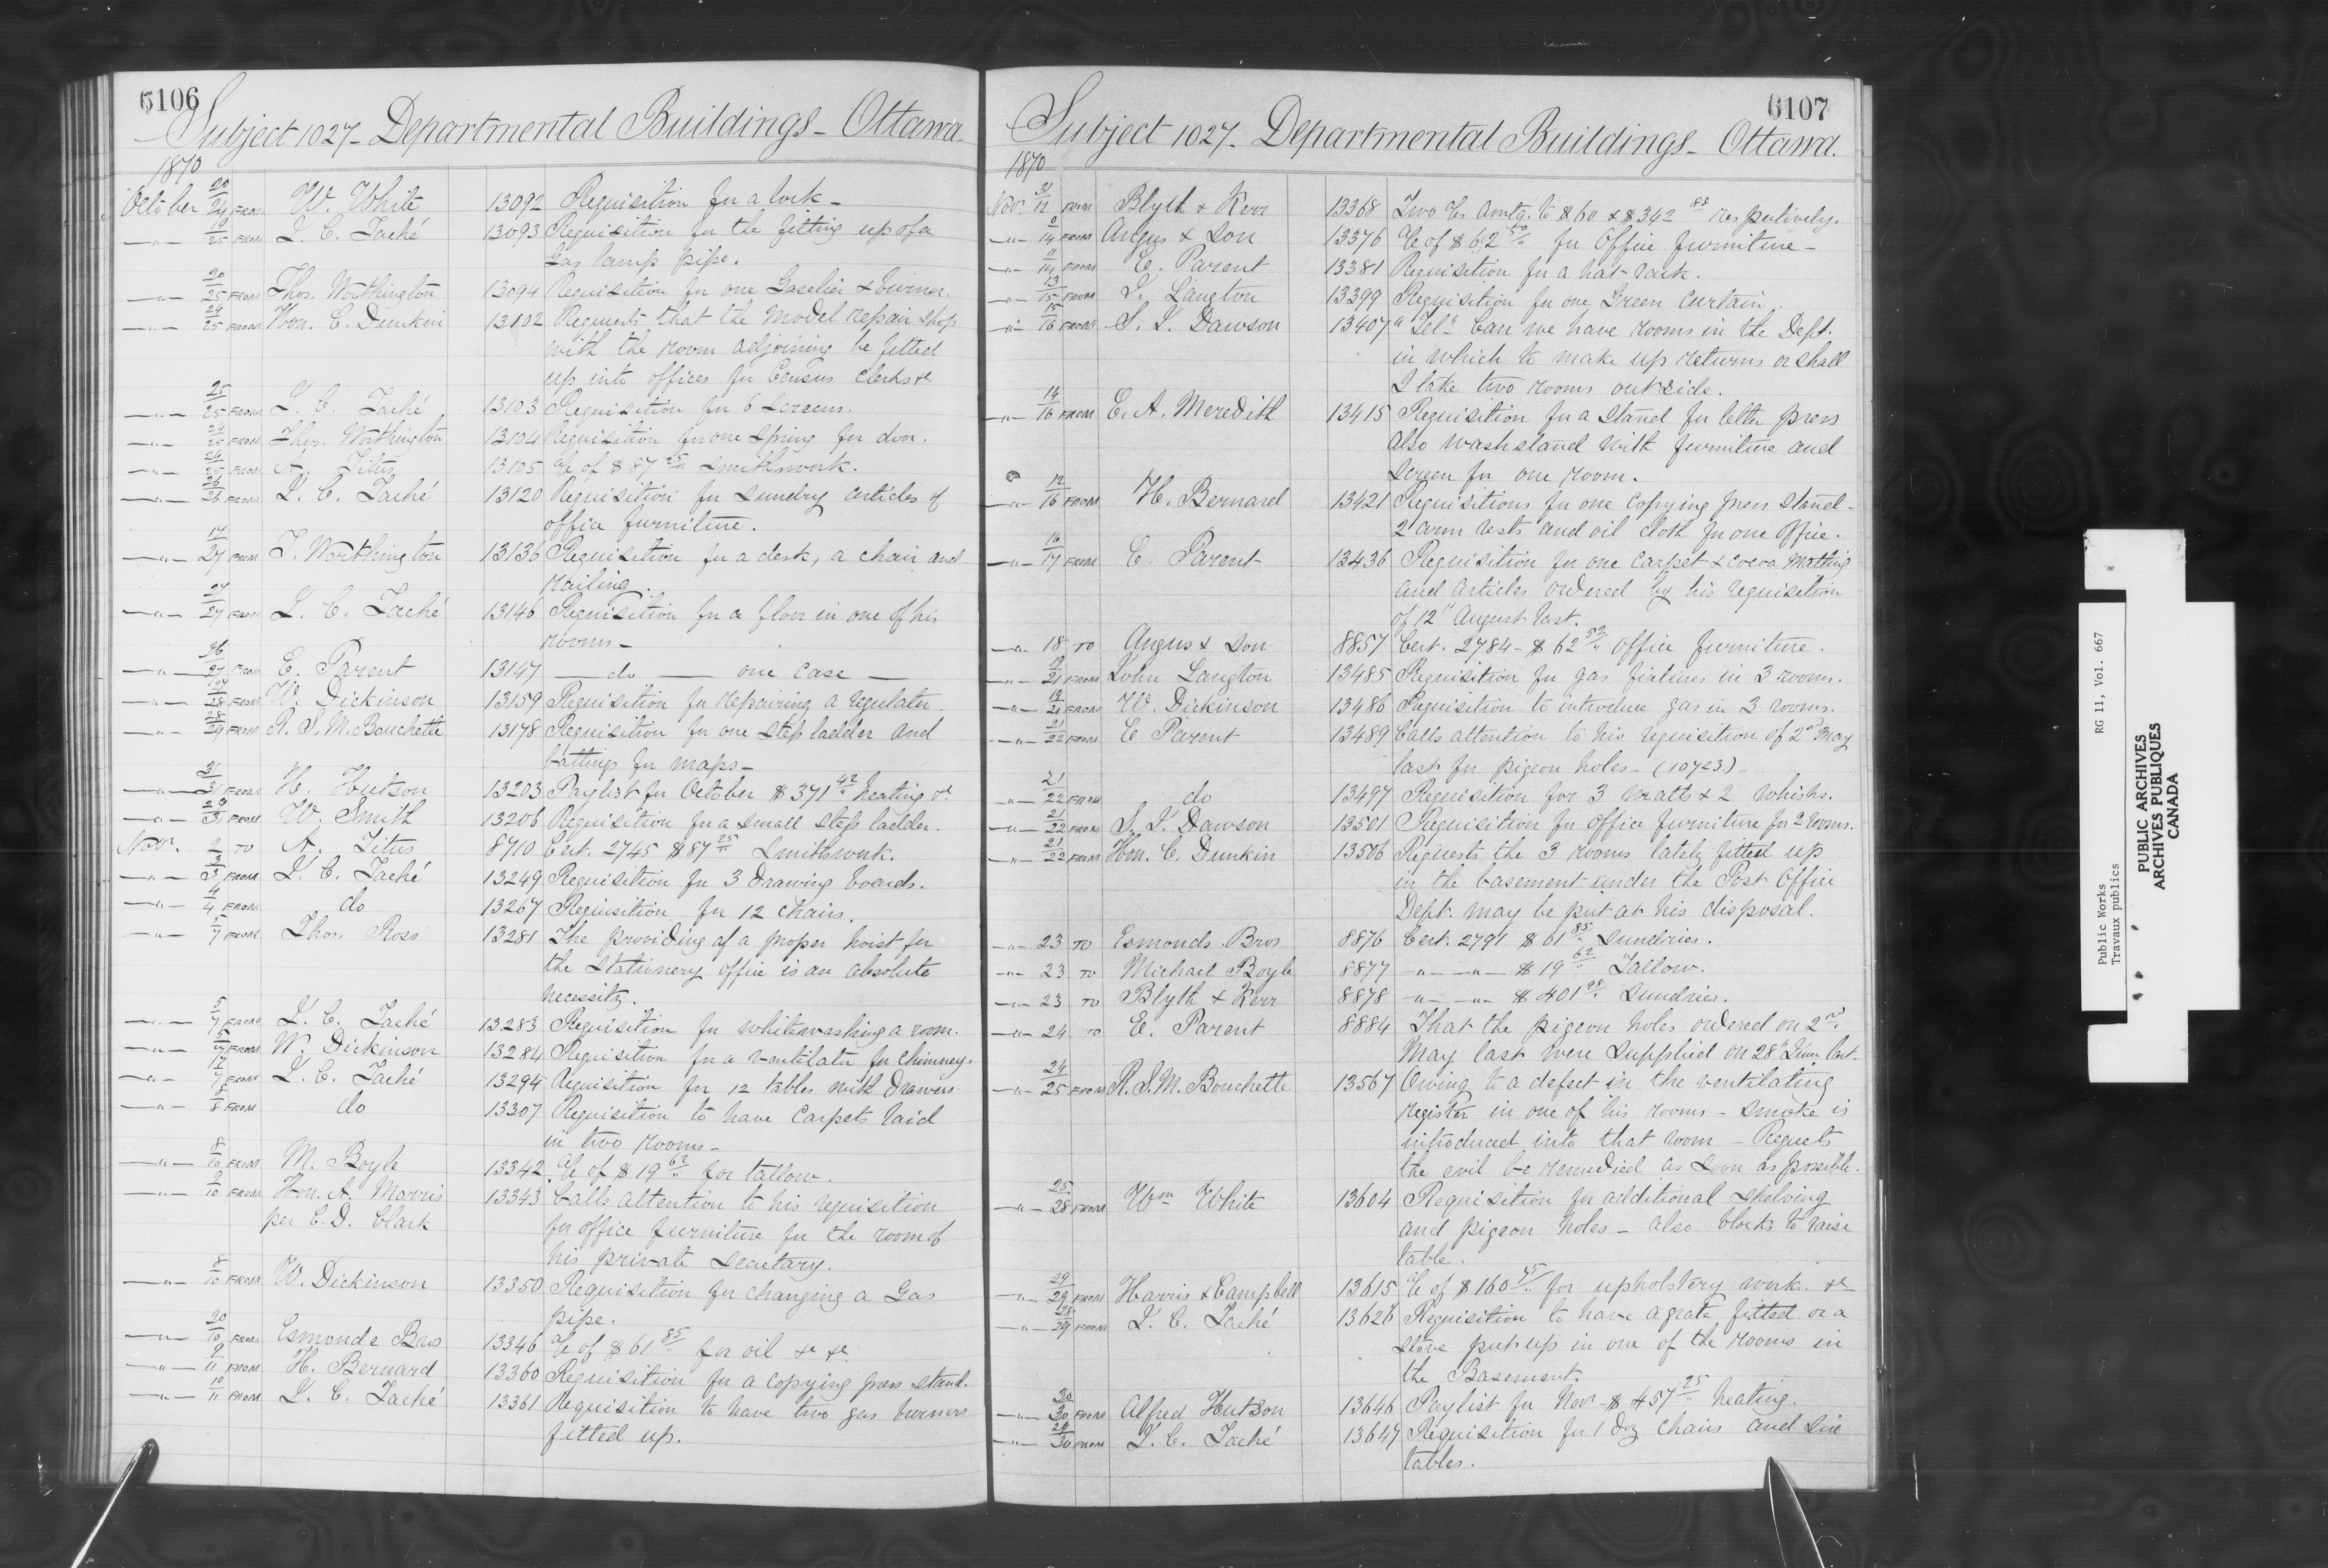 6106
Subject 1027 - Departmental Buildings - Ottawa
1870
October 20/24 FROM W. White 13092 Requisition for a lock -
" 19/25 FROM J. C. Taché 13093 Requisition for the fitting up of a
Gas lamp pipe.
" 20/25 FROM Thos. Worthington 13094 Requisition for one Gaselier & burner.
" 24/25 FROM Hon. C. Dunkin 13102 Requests that the Model repair shop
with the room adjoining be fitted
up into offices for Census clerks &c
" 25/25 FROM J. C. Taché 13103 Requisition for 6 screens.
" 24/25 FROM Thos. Worthington 13104 Requisition for one spring for door.
" 24/25 FROM A. Titus 13105 a/c of $87 25/" Smithswork.
" 26/26 FROM J. C. Taché 13120 Requisition for sundry articles of
office furniture.
" 17/27 FROM T. Worthington 13136 Requisition for a desk, a chair and
railing.
" 27/27 FROM J. C. Taché 13146 Requisition for a floor in one of his
rooms -
" 26/27 FROM E. Parent 13147 — do — one case —
" 27/28 FROM W. Dickinson 13159 Requisition for repairing a regulator.
" 28/29 FROM R. S. M. Bouchette 13178 Requisition for one step ladder and
battings for maps -
" 31/31 FROM H. Hutson 13203 Paylist for October $371 42/" heating &c
" 29/31 FROM W. Smith 13206 Requisition for a small step ladder.
Nov. 2 TO A. Titus 8710 Cert. 2745 $87 25/" Smithswork.
" 3/3 FROM J. C. Taché 13249 Requisition for 3 Drawing boards.
" 4/4 FROM do 13267 Requisition for 12 chairs.
" 5/7 FROM Thos. Ross 13281 The providing of a proper hoist for
the Stationery office is an absolute
necessity.
" 5/7 FROM J. C. Taché 13283 Requisition for whitewashing a room.
" 5/7 FROM W. Dickinson 13284 Requisition for a ventilator for chimney.
" 7 FROM J. C. Taché 13294 Requisition for 12 tables with Drawers
" 8/8 FROM do 13307 Requisition to have Carpets laid
in two rooms -
" 8/10 FROM M. Boyle 13342 a/c of $19 62/" for tallow.
" 9/10 FROM Hon. A. Morris 13343 Calls attention to his requisition
per C. D. Clark for office furniture for the room of
his private secretary.
" 8/10 FROM W. Dickinson 13350 Requisition for changing a Gas
pipe.
" 20/10 FROM Esmonde Bros 13346 a/c of $61 85/" for oil &c &c
" 9/11 FROM H. Bernard 13360 Requisition for a copying press stand.
" 10/11 FROM J. C. Taché 13361 Requisition to have two gas burners
fitted up.
6107
Subject 1027 - Departmental Buildings - Ottawa.
1870
Nov. 31/12 FROM Blyth & Kerr 13368 Two a/cs amtg. to $60 & $342 88 respectively.
" 14 FROM Angus & Son 13376 a/c of $62 50/" for Office furniture -
" 11/14 FROM E. Parent 13381 Requisition for a hat rack.
" 13/15 FROM J. Langton 13399 Requisition for one Green Curtain.
" 15/16 FROM S. J. Dawson 13407 "Tel" Can we have rooms in the Dept.
in which to make up returns or shall
I take two rooms outside.
" 14/16 FROM E. A. Meredith 13415 Requisition for a stand for letter press
also washstand with furniture and
screen for one room.
" 12/16 FROM H. Bernard 13421 Requisitions for one Copying press stand -
2 arm rests and oil cloth for one office.
" 16/17 FROM E. Parent 13436 Requisition for one Carpet & cocoa Matting
and articles ordered by his requisition
of 12" August last.
" 18 TO Angus & Son 8857 Cert. 2784 - $62 52/" office furniture.
" 19/21 FROM John Langton 13485 Requisition for gas fixtures in 3 rooms.
" 19/21 FROM W. Dickinson 13486 Requisition to introduce gas in 3 rooms.
" 21/22 FROM E. Parent 13489 Calls attention to his requisition of 2nd May
last for pigeon holes - (10723) -
" 21/22 FROM do 13497 Requisition for 3 matts & 2 whisks.
" 21/22 FROM S. J. Dawson 13501 Requisition for office furniture for 2 rooms.
" 21/22 FROM Hon. C. Dunkin 13506 Requests the 3 rooms lately fitted up
in the basement under the Post Office
Dept. may be put at his disposal.
" 23 TO Esmonds Bros 8876 Cert. 2791 $61 85/" Sundries.
" 23 TO Michael Boyle 8877 — " — " — $19 62/" Tallow.
" 23 TO Blyth & Kerr 8878 — " — " — $401 98/" Sundries.
" 24 TO E. Parent 8884 That the pigeon holes ordered on 2nd
May last were supplied on 28" June last.
" 24/25 FROM R. S. M. Bouchette 13567 Owing to a defect in the ventilating
register in one of his rooms - smoke is
introduced into that room - Requests
the evil be remedied as soon as possible.
" 25/28 FROM Wm White 13604 Requisition for additional shelving
and pigeon holes - also blocks to raise
table.
" 29/29 FROM Harris & Campbell 13615 a/c of $160 45/" for upholstery work &c
" 28/29 FROM J. C. Taché 13626 Requisition to have a grate fitted or a
stove put up in one of the rooms in
the Basement.
" 30/30 FROM Alfred Hutson 13646 Paylist for Nov - $457 25/" heating.
" 29/30 FROM J. C. Taché 13647 Requisition for 1 doz chairs and six
tables.
Public Works RG 11, Vol. 667
Travaux publics
PUBLIC ARCHIVES
ARCHIVES PUBLIQUES
CANADA